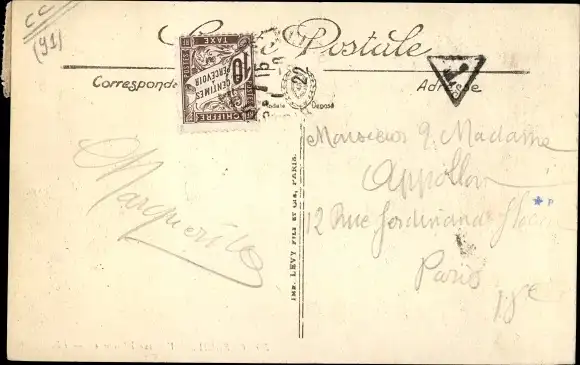 CC
(91)
Carte Postale
Correspondance
Adresse
TAXE
10
CENTIMES
À PERCEVOIR
CHIFFRE
T
Déposé
Marguerite
IMP. LEVY FILS ET CIE, PARIS.
Monsieur & Madame
Appollon
12 Rue Ferdinand Flocon
Paris
18e
* P